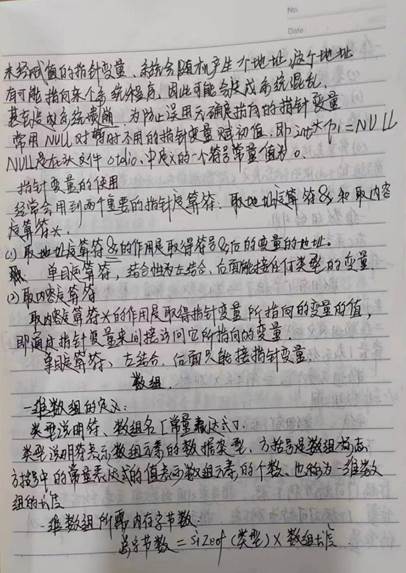 No.
Date
未经赋值的指针变量、系统会随机产生一个地址,这个地址
有可能指向某个系统程序,因此可能会造成系统混乱,
甚至造成系统崩溃,为防止误用无确定指向的指针变量
常用NULL对暂时不用的指针变量赋初值,即int*p1=NULL
NULL是在头文件stdio.中定义的一个符号常量值为0。
指针变量的使用
经常会用到两个重要的指针运算符.取地址运算符&和取内容
运算符*.
(1)取地址运算符&的作用是取得符号&后的变量的地址。
单目运算符,结合性为左结合、后面能接任何类型的变量
(2)取内容运算符
取内容运算符*的作用是取得指针变量所指向的变量的值,
即通过指针变量来间接访问它所指向的变量.
单目运算符、左结合.后面只能接指针变量.
数组.
一维数组的定义:
类型说明符、数组名[常量表达式].
类型说明符表示数组元素的数据类型,方括号是数组标志
方括号中的常量表达式的值表示数组元素的个数,也称为一维数
组的长度
一维数组所需内存字节数:
总字节数=sizeof(类型)×数组长度